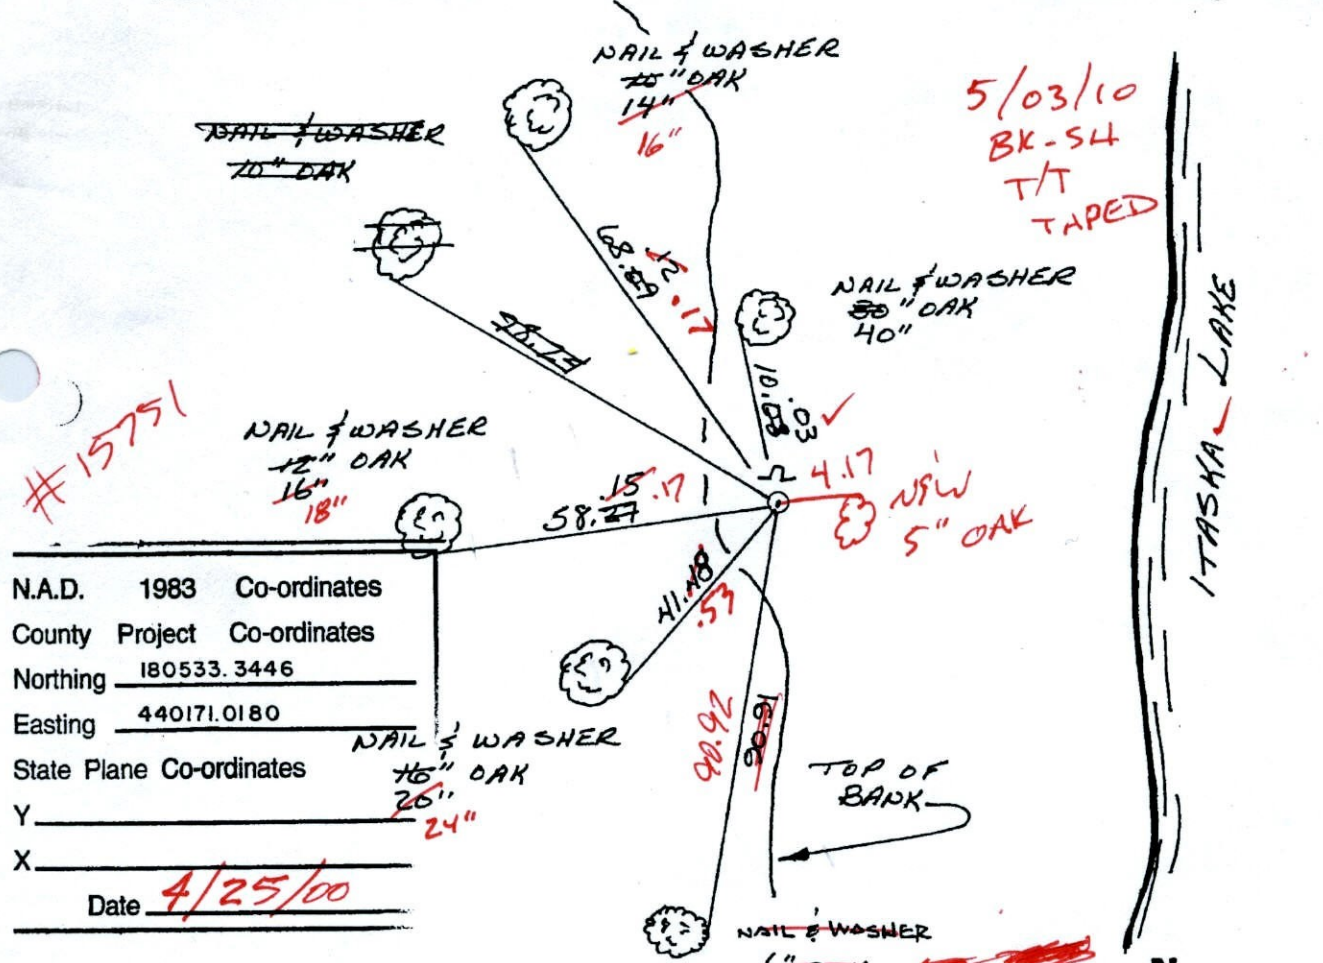 NAIL & WASHER
10" OAK
14"
16"
5/03/10
BK-54
T/T
TAPED
NAIL & WASHER
10" OAK
68.
.12
.17
NAIL & WASHER
30" OAK
40"
10.08
.03 ✓
ITASKA LAKE
#15751
NAIL & WASHER
12" OAK
16"
18"
58.27
.15
.17
4.17
NEW
5" OAK
41.48
.53
N.A.D. 1983 Co-ordinates
County Project Co-ordinates
Northing 180533.3446
Easting 440171.0180
State Plane Co-ordinates
Y
X
Date 4/25/00
NAIL & WASHER
16" OAK
20"
24"
90.92
TOP OF
BANK
NAIL & WASHER